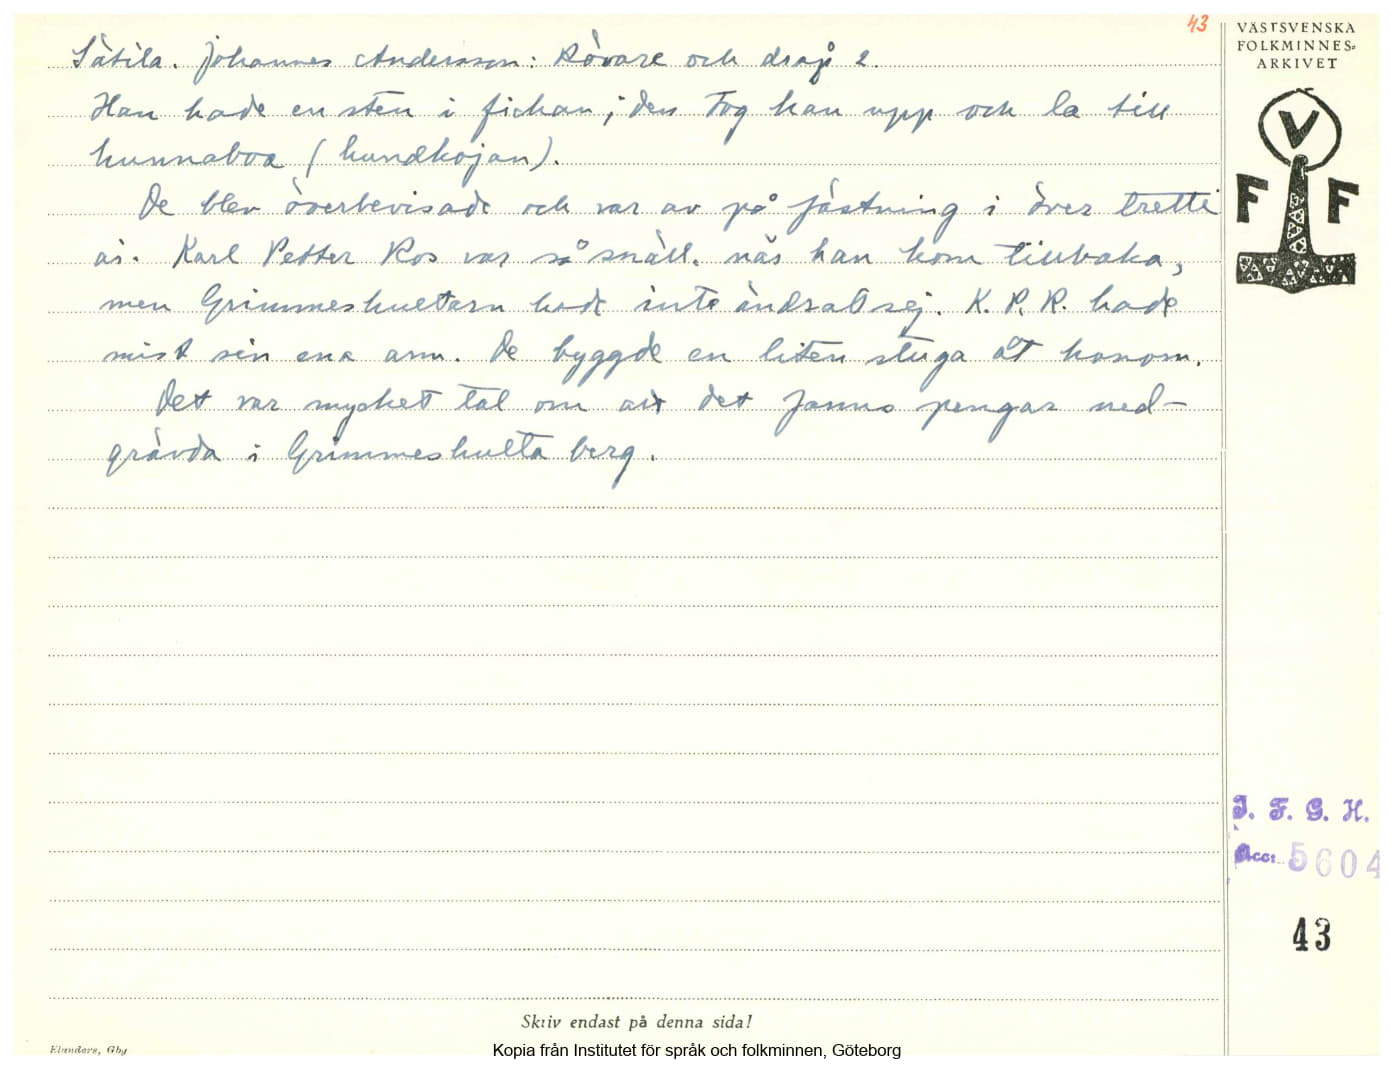 43
VÄSTSVENSKA
FOLKMINNES-
ARKIVET
V
F F
Sätila. Johannes Andersson: Rövare och dråp 2.
Han hade en sten i fickan, den tog han upp och la till
hunnaboa (hundkojan).
De blev överbevisade och var av på fästning i över tretti
år. Karl Petter Ros var så snäll, när han kom tillbaka,
men Grimmeshultarn hade inte ändrat sej. K. P. R. hade
mist sin ena arm. De byggde en liten stuga åt honom.
Det var mycket tal om att det fanns pengar ned-
grävda i Grimmeshulta berg.
I. F. G. H.
Acc: 5604
43
Skriv endast på denna sida!
Elanders, Gbg
Kopia från Institutet för språk och folkminnen, Göteborg